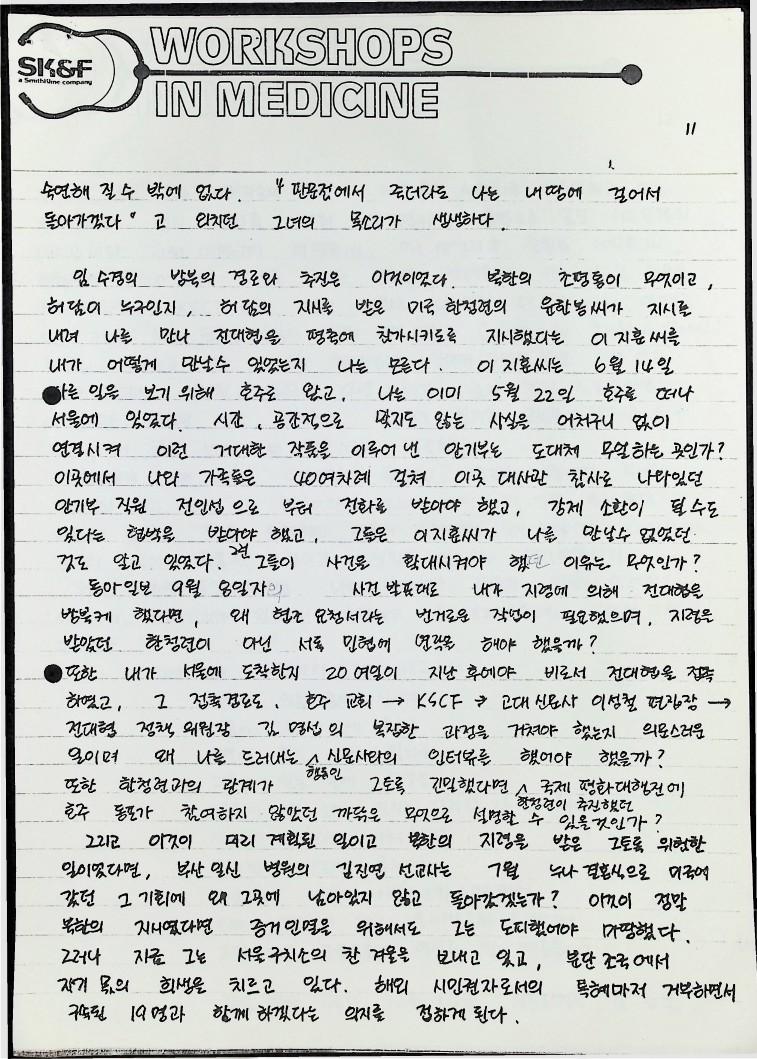 SK&F
a SmithKline company
WORKSHOPS
IN MEDICINE
11
숙연해 질 수 밖에 없다. "판문점에서 죽더라도 나는 내 땅에 걸어서
돌아가겠다" 고 외치던 그녀의 목소리가 생생하다.
임 수경의 방북의 경로와 추진은 이것이었다. 북한의 조평통이 무엇이고,
허담이 누구인지, 허 담의 지시를 받은 미국 한청련의 윤한봉씨가 지시를
내려 나를 만나 전대협을 평축에 참가시키도록 지시했다는 이 지훈씨를
내가 어떻게 만날수 있었는지 나는 모른다. 이 지훈씨는 6월 14일
다른 일을 보기 위해 호주로 왔고, 나는 이미 5월 22일 호주를 떠나
서울에 있었다. 시간, 공간적으로 맞지도 않는 사실을 어처구니 없이
연결시켜 이런 거대한 작품을 이루어 낸 안기부는 도대체 무얼하는 곳인가?
이곳에서 나와 가족들은 40여차례 걸쳐 이곳 대사관 참사로 나와있던
안기부 직원 전인섭 으로 부터 전화를 받아야 했고, 강제 소환이 될 수도
있다는 협박을 받아야 했고, 그들은 이지훈씨가 나를 만날수 없었던
것도 알고 있었다. 그들이 사건을 확대시켜야 했던 이유는 무엇인가?
동아일보 9월 8일자의 사건 발표대로 내가 지령에 의해 전대협을
방북케 했다면, 왜 협조 요청서라는 번거로운 작년이 필요했으며, 지령을
받았던 한청련이 아닌 서독 민협에 연락을 해야 했을까?
또한 내가 서울에 도착한지 20여일이 지난 후에야 비로서 전대협을 접촉
하였고, 그 접촉경로도, 호주 교회 → KSCF → 고대신문사 이성철 편집장 →
전대협 정책 위원장 김 명섭 의 복잡한 과정을 거쳐야 했는지 의문스러운
일이며 왜 나를 드러내는 행동인 신문사와의 인터뷰를 했어야 했을까?
또한 한청련과의 관계가 그토록 긴밀했다면 한청련이 추진했던 국제 평화대행진에
호주 동포가 참여하지 않았던 까닭은 무엇으로 설명할 수 있을것인가?
그리고 이것이 미리 계획된 일이고 북한의 지령을 받은 그토록 위험한
일이었다면, 부산 일신 병원의 김진엽 선교사는 7월 누나 결혼식으로 미국에
갔던 그 기회에 왜 그곳에 남아있지 않고 돌아갔겠는가? 이것이 정말
북한의 지시였다면 증거 인멸을 위해서도 그는 도피했어야 마땅했다.
그러나 지금 그는 서울구치소의 찬 겨울을 보내고 있고, 분단 조국에서
자기 몫의 희생을 치르고 있다. 해외 시민권자로서의 특혜마저 거부하면서
구속된 19명과 함께 하겠다는 의지를 접하게 된다.